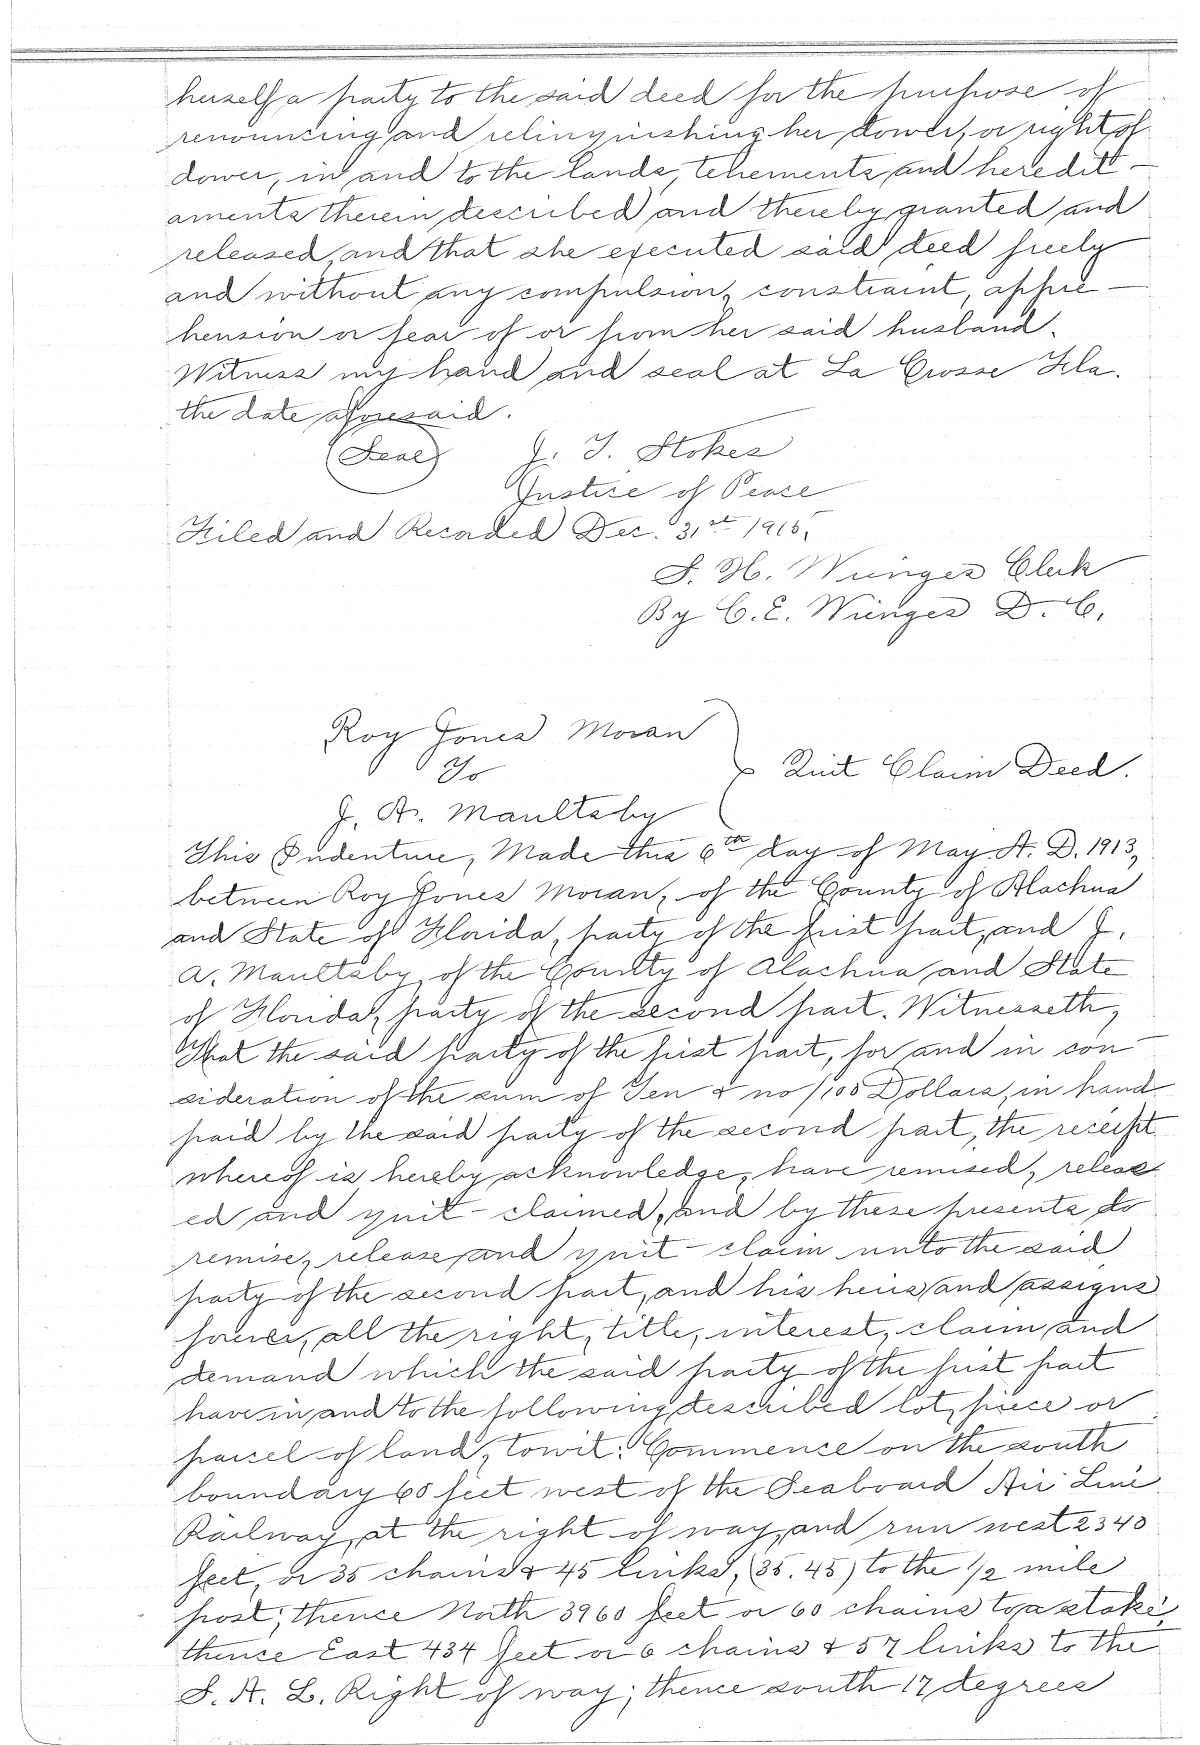 herself a party to the said deed for the purpose of
renouncing and relinquishing her dower, or right of
dower, in and to the lands, tenements and heredit-
aments therein described and thereby granted and
released, and that she executed said deed freely
and without any compulsion, constraint, appre-
hension or fear of or from her said husband.
Witness my hand and seal at La Crosse Fla.
the date aforesaid.
(Seal) J. T. Stokes
Justice of Peace
Filed and Recorded Dec. 31st 1915,
S. H. Wienges Clerk
By C. E. Wienges D. C.
Roy Jones Moran
To
Quit Claim Deed.
J. A. Maultsby
This Indenture, Made this 6th day of May A. D. 1913,
between Roy Jones Moran, of the County of Alachua
and State of Florida, party of the first part, and J.
A. Maultsby, of the County of Alachua and State
of Florida, party of the second part. Witnesseth,
That the said party of the first part, for and in con-
sideration of the sum of Ten & no/100 Dollars, in hand
paid by the said party of the second part, the receipt
whereof is hereby acknowledge, have remised, releas-
ed and quit-claimed, and by these presents do
remise, release and quit-claim unto the said
party of the second part, and his heirs and assigns
forever, all the right, title, interest, claim and
demand which the said party of the first part
have in and to the following described lot, piece or
parcel of land, towit: Commence on the south
boundary 60 feet west of the Seaboard Air Line
Railway, at the right of way, and run west 2340
feet, or 35 chains & 45 links, (35.45) to the 1/2 mile
post; thence North 3960 feet or 60 chains to a stake,
thence East 434 feet or 6 chains & 57 links to the
S. A. L. Right of way; thence south 17 degrees